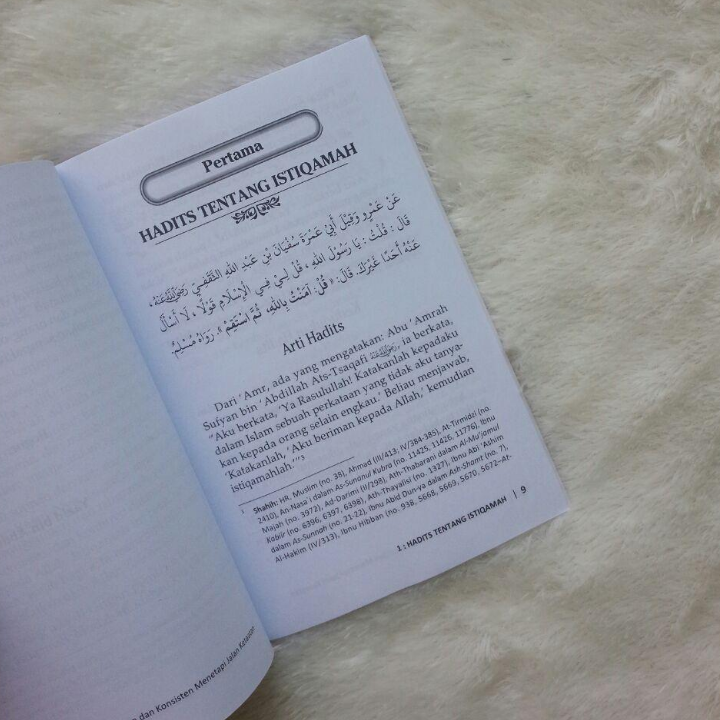 Pertama
HADITS TENTANG ISTIQAMAH
عَنْ عَمْرٍو وَقِيْلَ أَبِيْ عَمْرَةَ سُفْيَانَ بْنِ عَبْدِ اللهِ الثَّقَفِيِّ رَضِيَ اللَّهُ عَنْهُ،
قَالَ : قُلْتُ : يَا رَسُوْلَ اللهِ ، قُلْ لِيْ فِي الْإِسْلَامِ قَوْلًا ، لَا أَسْأَلُ
عَنْهُ أَحَدًا غَيْرَكَ. قَالَ: «قُلْ: آمَنْتُ بِاللهِ، ثُمَّ اسْتَقِمْ». رَوَاهُ مُسْلِمٌ.
Arti Hadits
Dari 'Amr, ada yang mengatakan: Abu 'Amrah
Sufyan bin 'Abdillah Ats-Tsaqafi رَضِيَ اللَّهُ عَنْهُ, ia berkata,
"Aku berkata, 'Ya Rasulullah! Katakanlah kepadaku
dalam Islam sebuah perkataan yang tidak aku tanya-
kan kepada orang selain engkau.' Beliau menjawab,
'Katakanlah, 'Aku beriman kepada Allah,' kemudian
istiqamahlah.'"³
Shahih: HR. Muslim (no. 38), Ahmad (III/413; IV/384-385), At-Tirmidzi (no.
2410), An-Nasa-i dalam As-Sunanul Kubra (no. 11425, 11426, 11776), Ibnu
Majah (no. 3972), Ad-Darimi (II/298), Ath-Thabarani dalam Al-Mu'jamul
Kabiir (no. 6396, 6397, 6398), Ath-Thayalisi (no. 1327), Ibnu Abi 'Ashim
dalam As-Sunnah (no. 21-22), Ibnu Abid Dun-ya dalam Ash-Shamt (no. 7),
Al-Hakim (IV/313), Ibnu Hibban (no. 938, 5668, 5669, 5670, 5672–At-
1 : HADITS TENTANG ISTIQAMAH | 9
dan Konsisten Menetapi Jalan Ketaatan